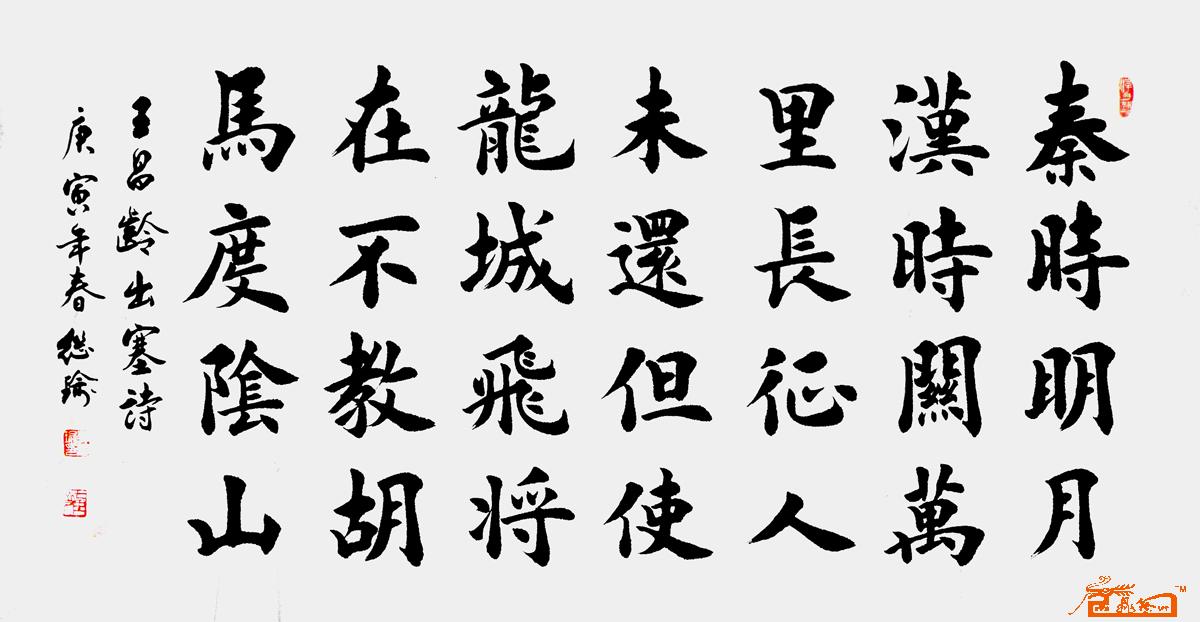 秦時明月
漢時關萬
里長征人
未還但使
龍城飛将
在不教胡
馬度陰山
王昌齡出塞詩
庚寅年春继瑜